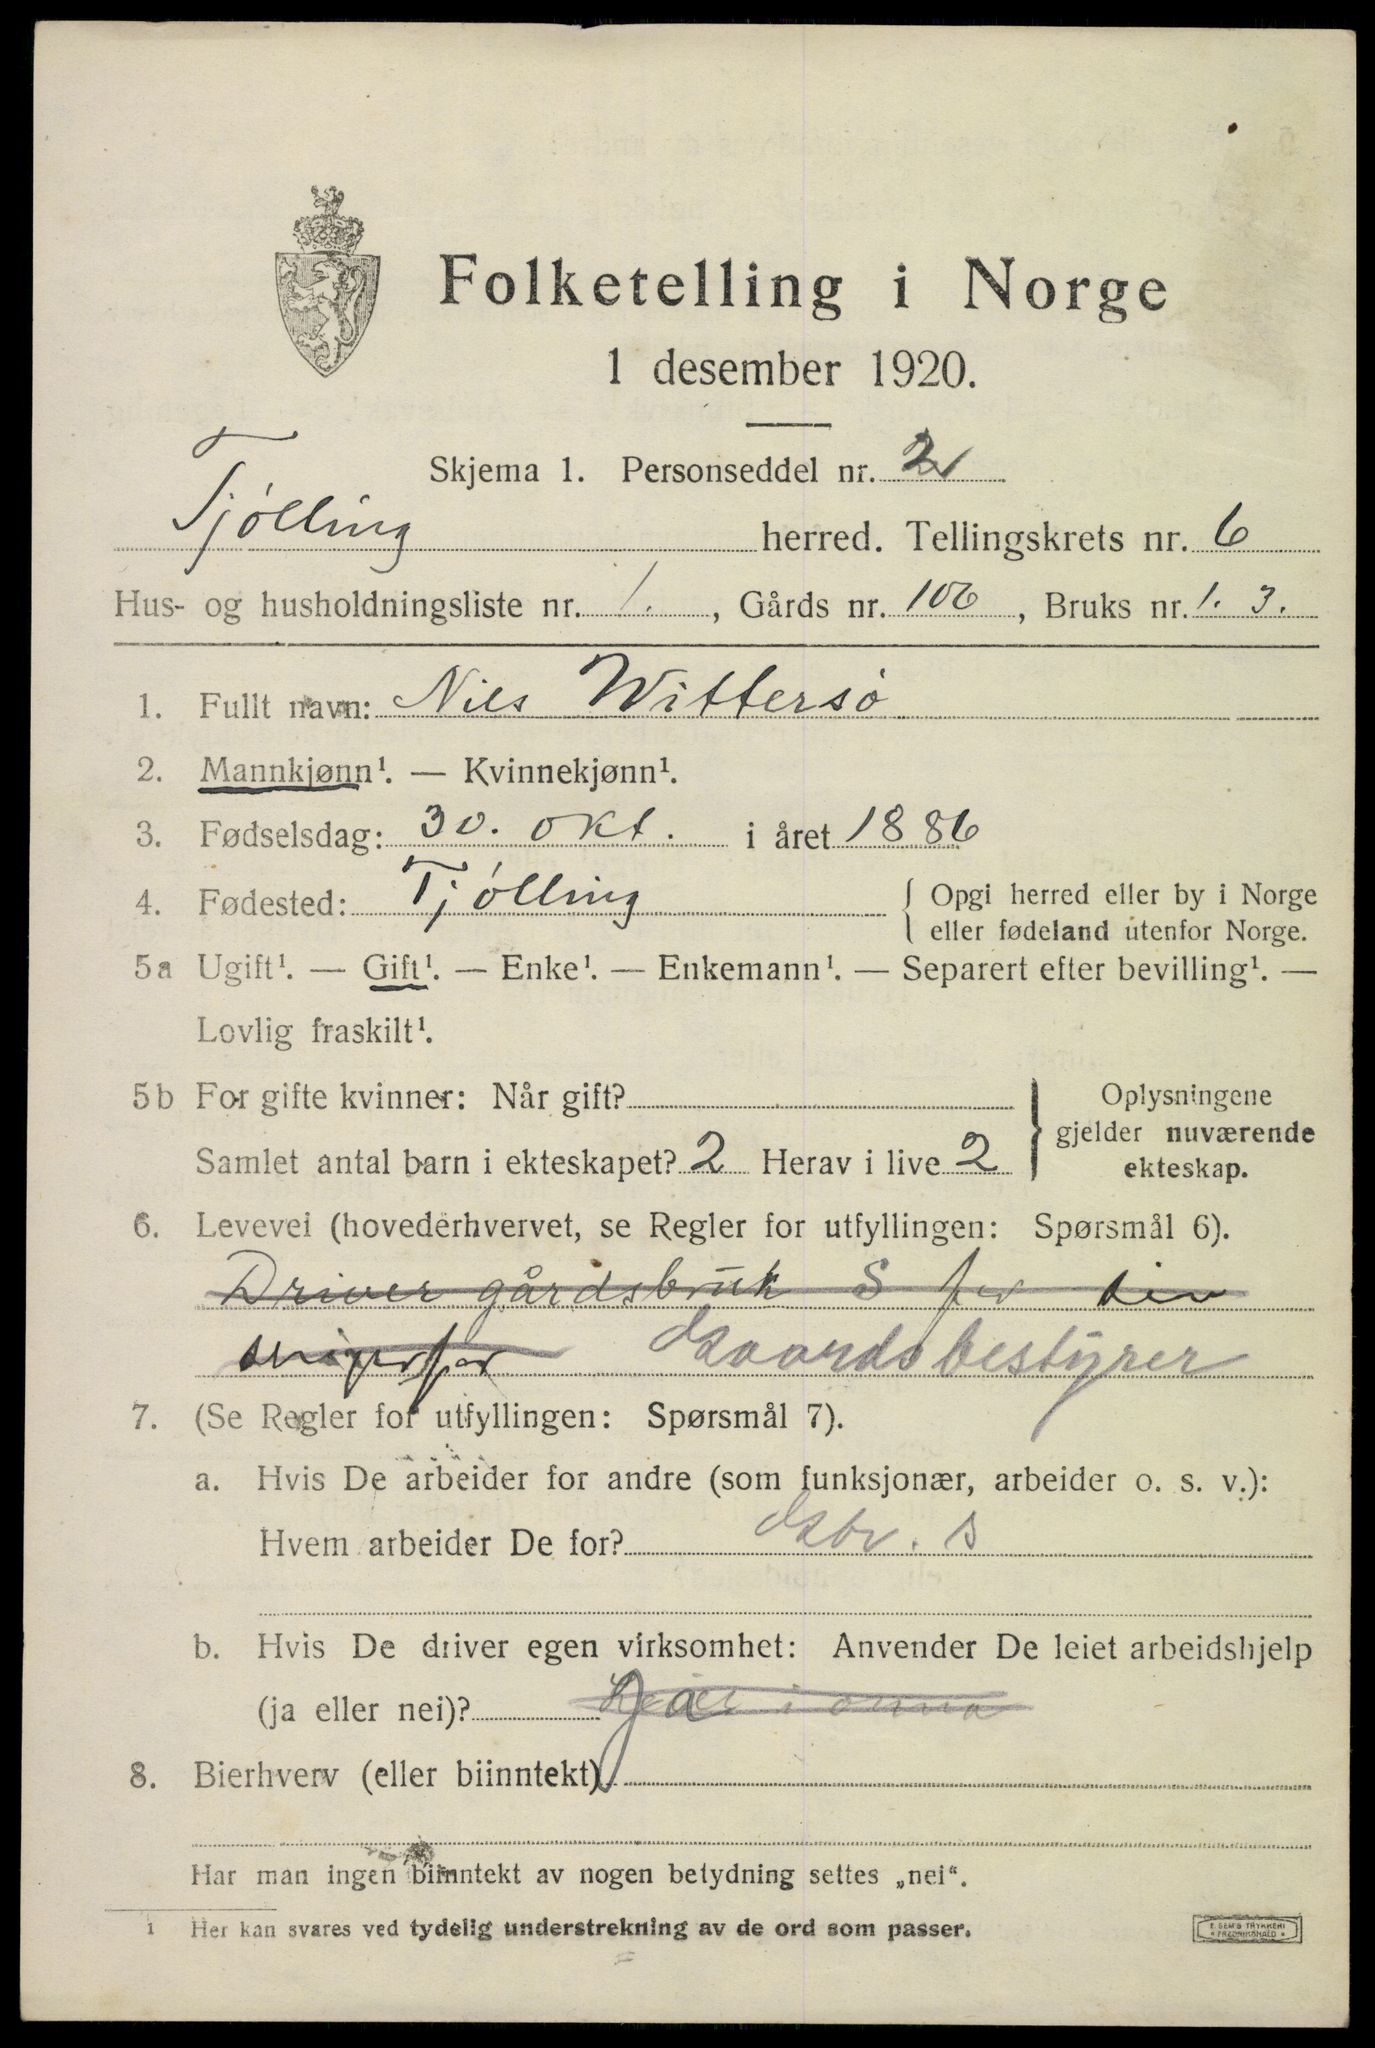 Folketelling i Norge
1 desember 1920.
Skjema 1. Personseddel nr. 2
Tjølling herred. Tellingskrets nr. 6
Hus- og husholdningsliste nr. 1. , Gårds nr. 106 , Bruks nr. 1. 3.
1. Fullt navn: Nils Wittersø
2. Mannkjønn¹. — Kvinnekjønn¹.
3. Fødselsdag: 30. okt. i året 1886
4. Fødested: Tjølling { Opgi herred eller by i Norge
eller fødeland utenfor Norge.
5a Ugift¹. — Gift¹. — Enke¹. — Enkemann¹. — Separert efter bevilling¹. —
Lovlig fraskilt¹.
5b For gifte kvinner: Når gift? } Oplysningene
gjelder nuværende
Samlet antal barn i ekteskapet? 2 Herav i live 2
ekteskap.
6. Levevei (hovederhvervet, se Regler for utfyllingen: Spørsmål 6).
Driver gårdsbruk S for sin
svigerfar Gaardsbestyrer
7. (Se Regler for utfyllingen: Spørsmål 7).
a. Hvis De arbeider for andre (som funksjonær, arbeider o. s. v.):
Hvem arbeider De for? Gbr. s
b. Hvis De driver egen virksomhet: Anvender De leiet arbeidshjelp
(ja eller nei)? Ja
8. Bierhverv (eller biinntekt)
Har man ingen biinntekt av nogen betydning settes „nei“.
1 Her kan svares ved tydelig understrekning av de ord som passer.
E. SEM'S TRYKKERI
* FREDRIKSHALD *